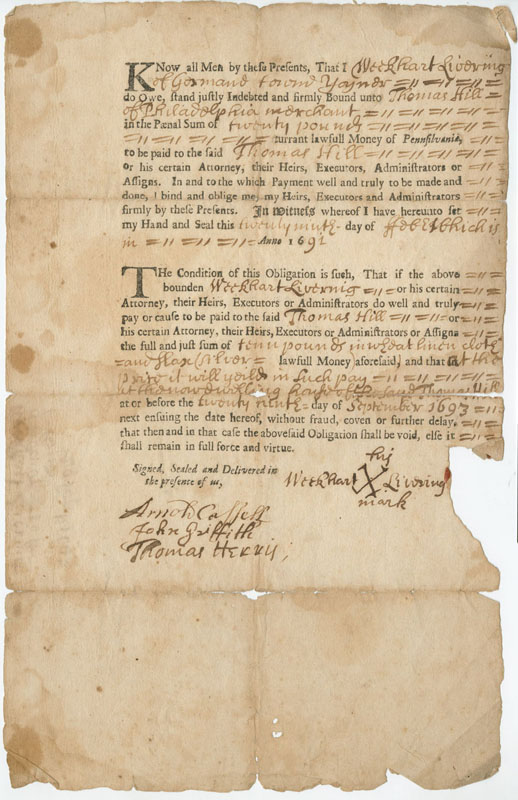 KNow all Men by these Presents, That I Weekhart Livering
of Germand town Joyner
do Owe, stand justly Indebted and firmly Bound unto Thomas Hill
of Philadelphia merchant
in the Pænal Sum of twenty pounds
currant lawfull Money of Pennsilvania,
to be paid to the said Thomas Hill
or his certain Attorney, their Heirs, Executors, Administrators or
Assigns. In and to the which Payment well and truly to be made and
done, I bind and oblige me, my Heirs, Executors and Administrators
firmly by these Presents. In Witness whereof I have hereunto set
my Hand and Seal this twenty ninth day of
in Anno 1692
THe Condition of this Obligation is such, That if the above
bounden Weekhart Livernig or his certain
Attorney, their Heirs, Executors or Administrators do well and truly
pay or cause to be paid to the said Thomas Hill or
his certain Attorney, their Heirs, Executors or Administrators or Assigns
the full and just sum of tenn pounds in wheat linen cloth
and flax (silver lawfull Money) aforesaid, and that at the
price it will yeild in such pay
at the now dwelling house of the said Thomas Hill
at or before the twenty ninth day of September 1693
next ensuing the date hereof, without fraud, coven or further delay,
that then and in that case the abovesaid Obligation shall be void, else it
shall remain in full force and virtue.
Signed, Sealed and Delivered in
the presence of us,
his
Weekhart X Livering
mark
Arnold Cassell
John Griffith
Thomas Herris